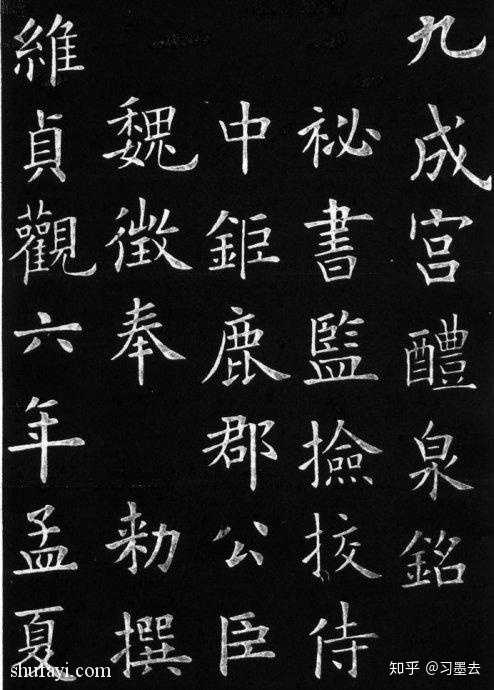 九成宮醴泉銘
祕書監撿挍侍
中鉅鹿郡公臣
魏徵奉敕撰
維貞觀六年孟夏
shufayi.com
知乎 @习墨去